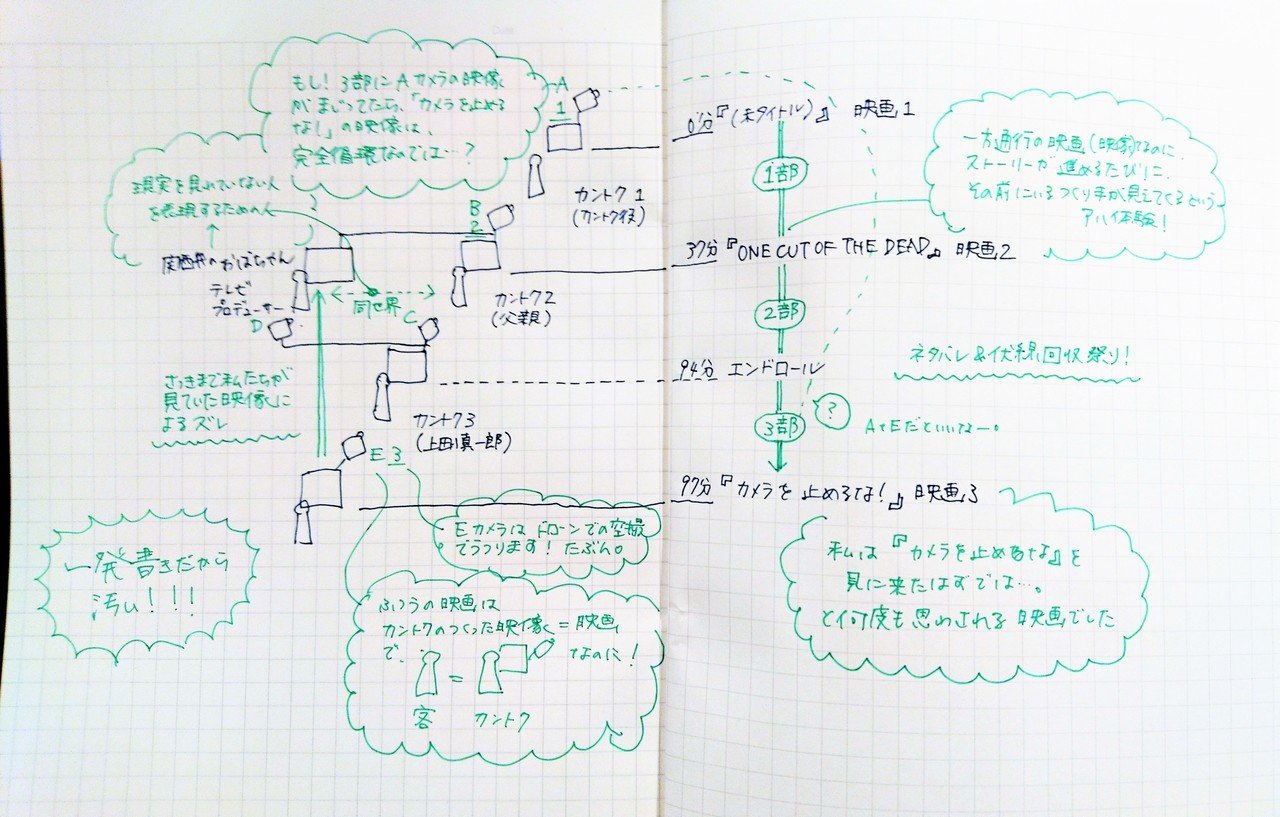 もし! 3部にAカメラの映像
がまじってたら、「カメラを止める
なし」の映像は、
完全循環なのでは…?
現実を見れていない人
を表現するための人
関西弁のおばちゃん
テレビ
プロデューサー
A
1
カントク1
(カントク役)
B
2
カントク2
(父親)
同世界
D
C
カントク3
(上田慎一郎)
さっきまで私たちが
見ていた映像に
よるズレ
E 3
Eカメラはドローンでの空撮
でうつります! たぶん。
一発書きだから
汚い!!!
ふつうの映画は
カントクのつくった映像=映画
で、
なのに!
=
客
カントク
0分『(未タイトル)』 映画1
1部
一方通行の映画(映像)なのに、
ストーリーが進めるたびに、
その前にいるつくり手が見えてくるという
アハ体験!
37分『ONE CUT OF THE DEAD』 映画2
2部
ネタバレ&伏線回収祭り!
94分 エンドロール
3部
?
AとEだといいなー。
97分『カメラを止めるな!』 映画3
私は『カメラを止めるな』を
見に来たはずでは…。
と何度も思わされる映画でした